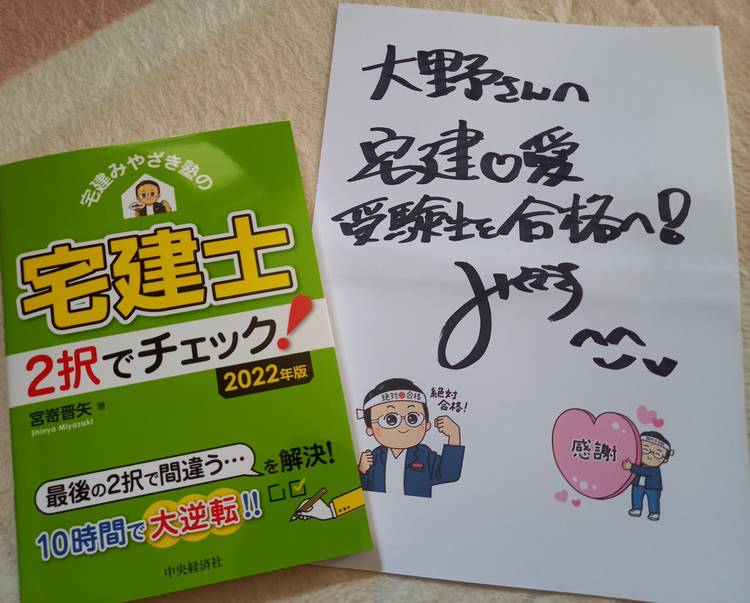 宅建みやざき塾の
宅建士
2択でチェック!
2022年版
宮嵜晋矢 著
Shinya Miyazaki
最後の2択で間違う…を解決!
10時間で大逆転!!
中央経済社
大野さんへ
宅建♡愛
受験生を合格へ!
みやざき
絶対合格
絶対
合格!
感謝